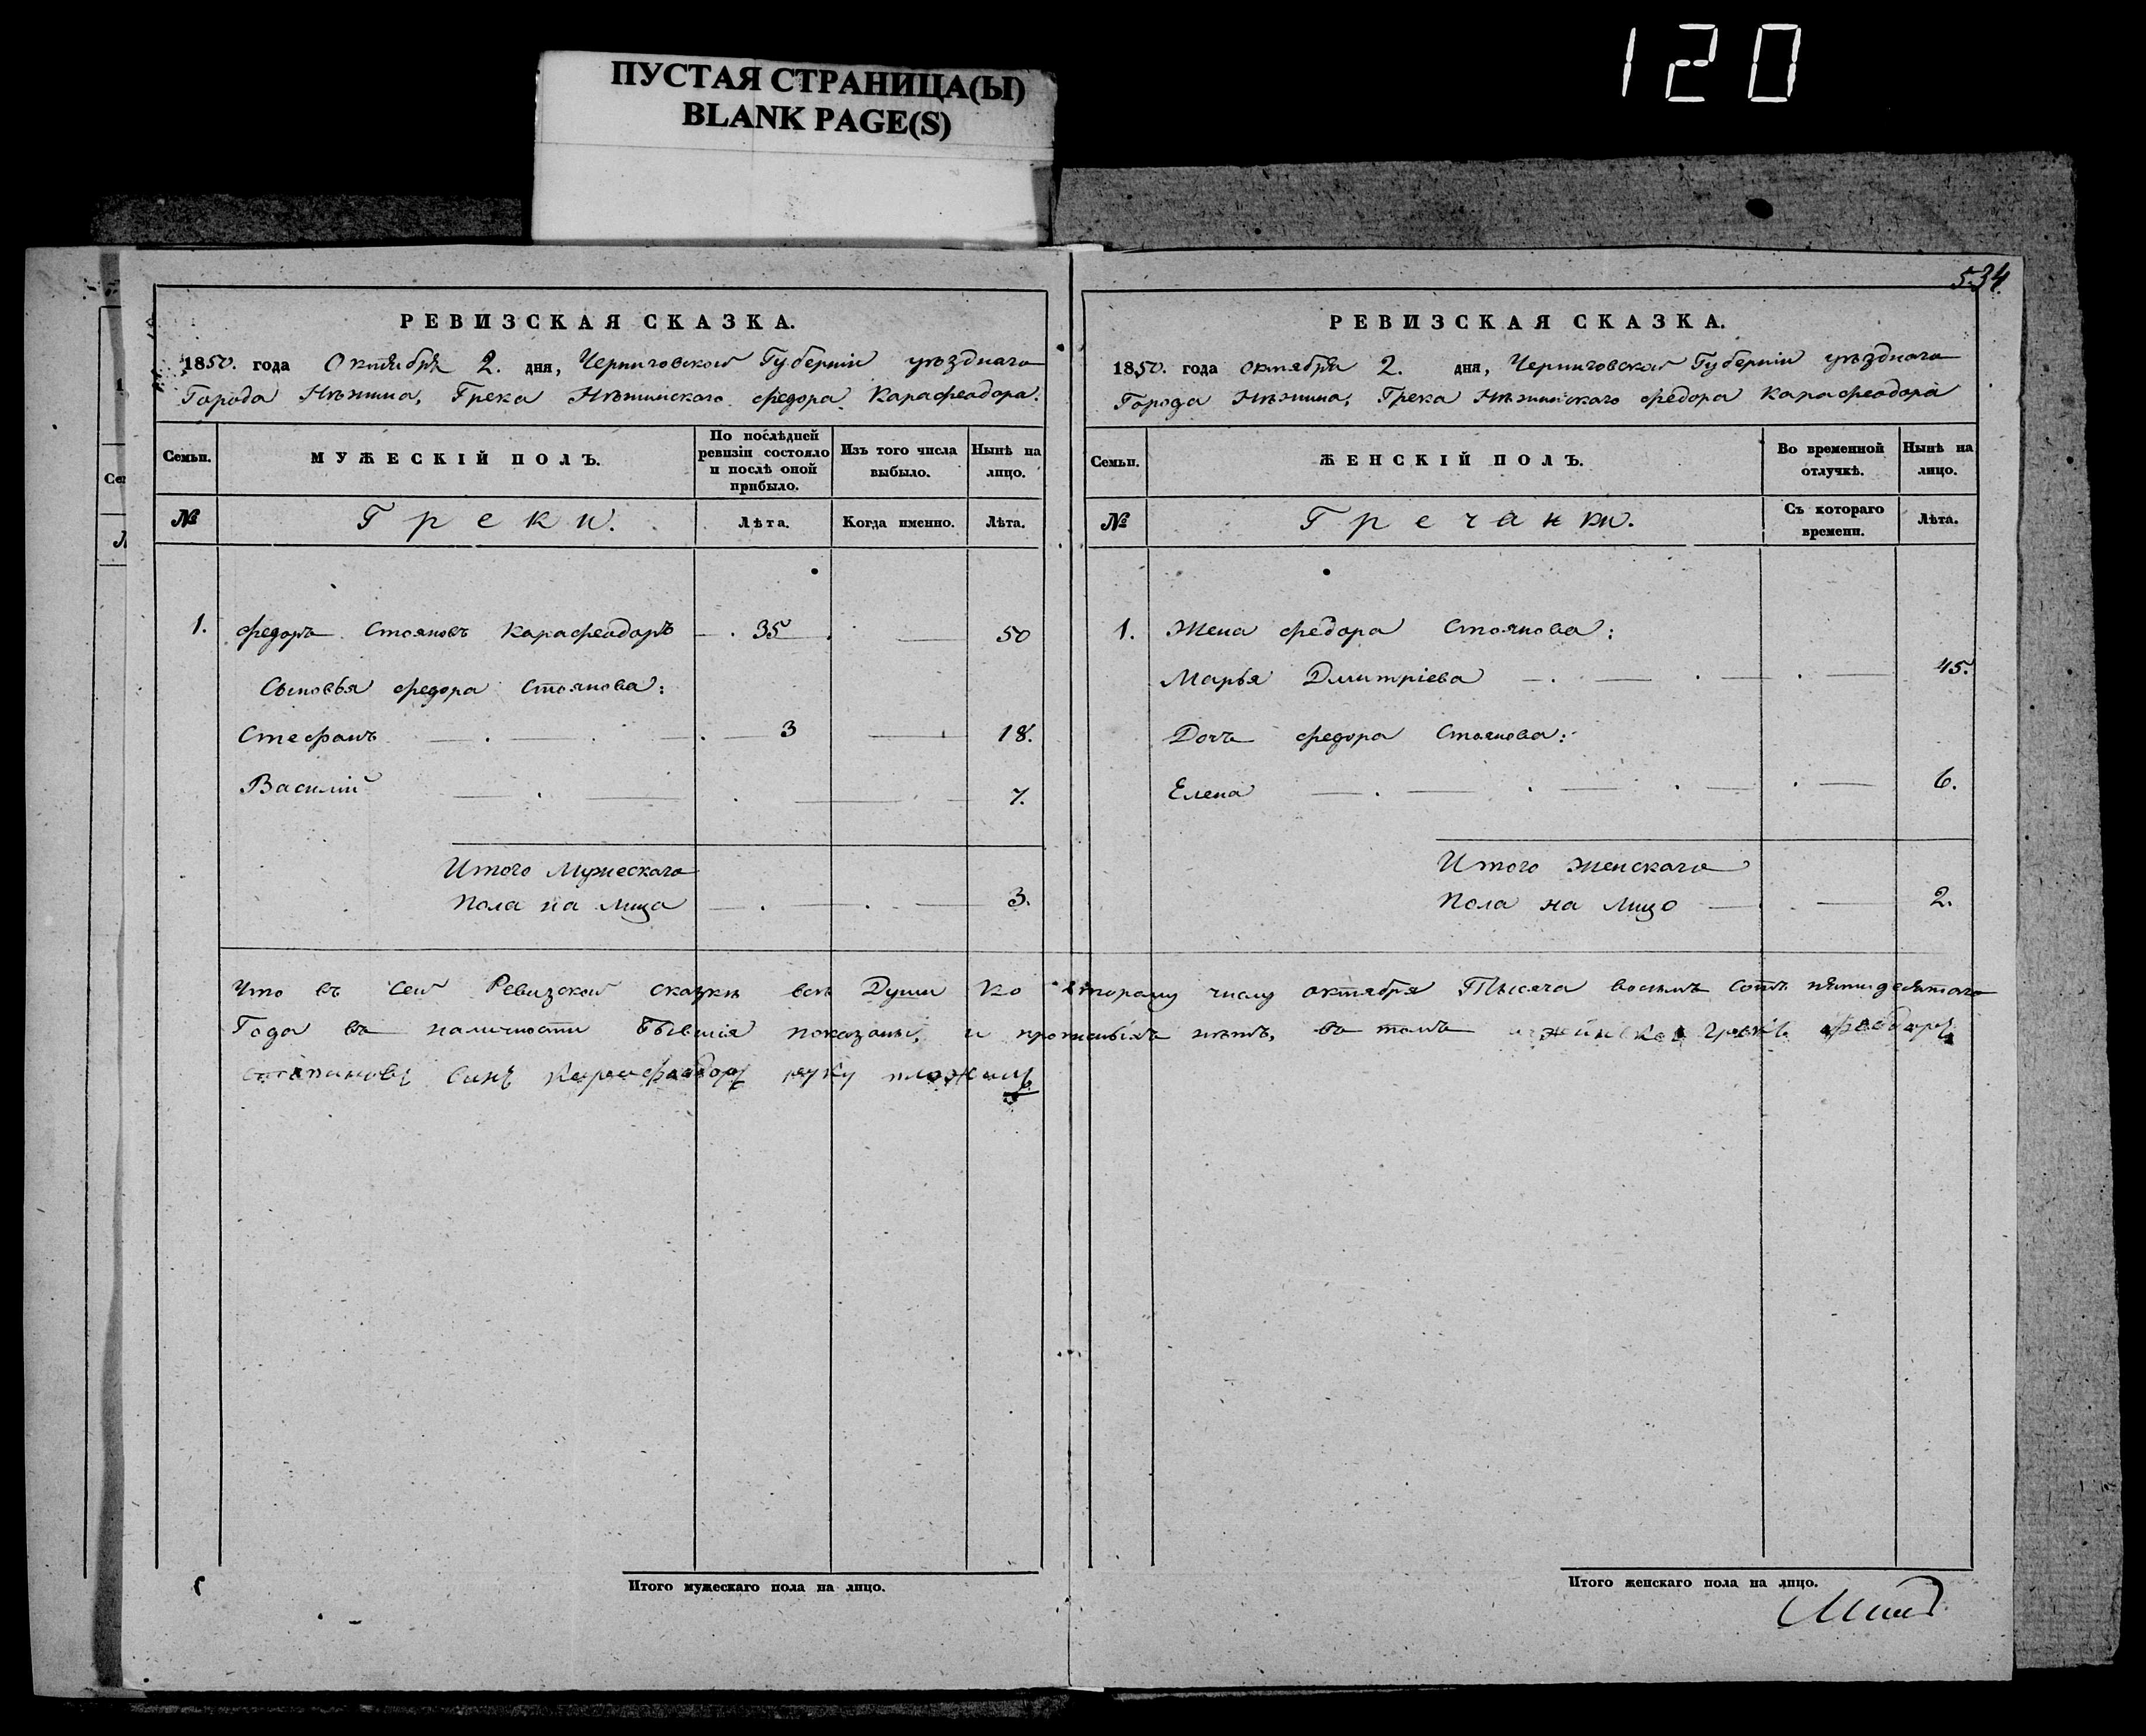 120
ПУСТАЯ СТРАНИЦА(Ы)
BLANK PAGE(S)
РЕВИЗСКАЯ СКАЗКА.
1850. года Октября 2. дня, Черниговской Губерніи уѣзднаго
Города Нѣжина, Грека Нѣжинского Федора Карафеодора.
Семьи.
МУЖЕСКІЙ ПОЛЪ.
По послѣдней ревизіи состояло и послѣ оной прибыло.
Изъ того числа выбыло.
Нынѣ на лицо.
№
Греки.
Лѣта.
Когда именно.
Лѣта.
1. Федоръ Стояновъ Карафеодоръ 35 50
Сыновья Федора Стоянова:
Стефанъ 3 18.
Василій 7.
Итого Мужескаго
Пола на Лица 3.
534
РЕВИЗСКАЯ СКАЗКА.
1850. года октября 2. дня, Черниговской Губерніи уѣзднаго
Города Нѣжина, Грека Нѣжинского Федора Карафеодора
Семьи.
ЖЕНСКІЙ ПОЛЪ.
Во временной отлучкѣ.
Нынѣ на лицо.
№
Гречанки.
Съ котораго времени.
Лѣта.
1. Жена Федора Стоянова:
Марья Дмитріева 45.
Дочь Федора Стоянова:
Елена 6.
Итого Женскаго
Пола на Лицо 2.
Что въ сей Ревизской сказкѣ всѣ Души Ко второму числу октября Тысяча восемь сотъ пятидесятого
Года въ наличности бывшія показаны, и прописныхъ нѣтъ, въ томъ грекъ Феодоръ
синъ Карафеодоръ руку
Итого мужескаго пола на лицо.
Итого женскаго пола на лицо.